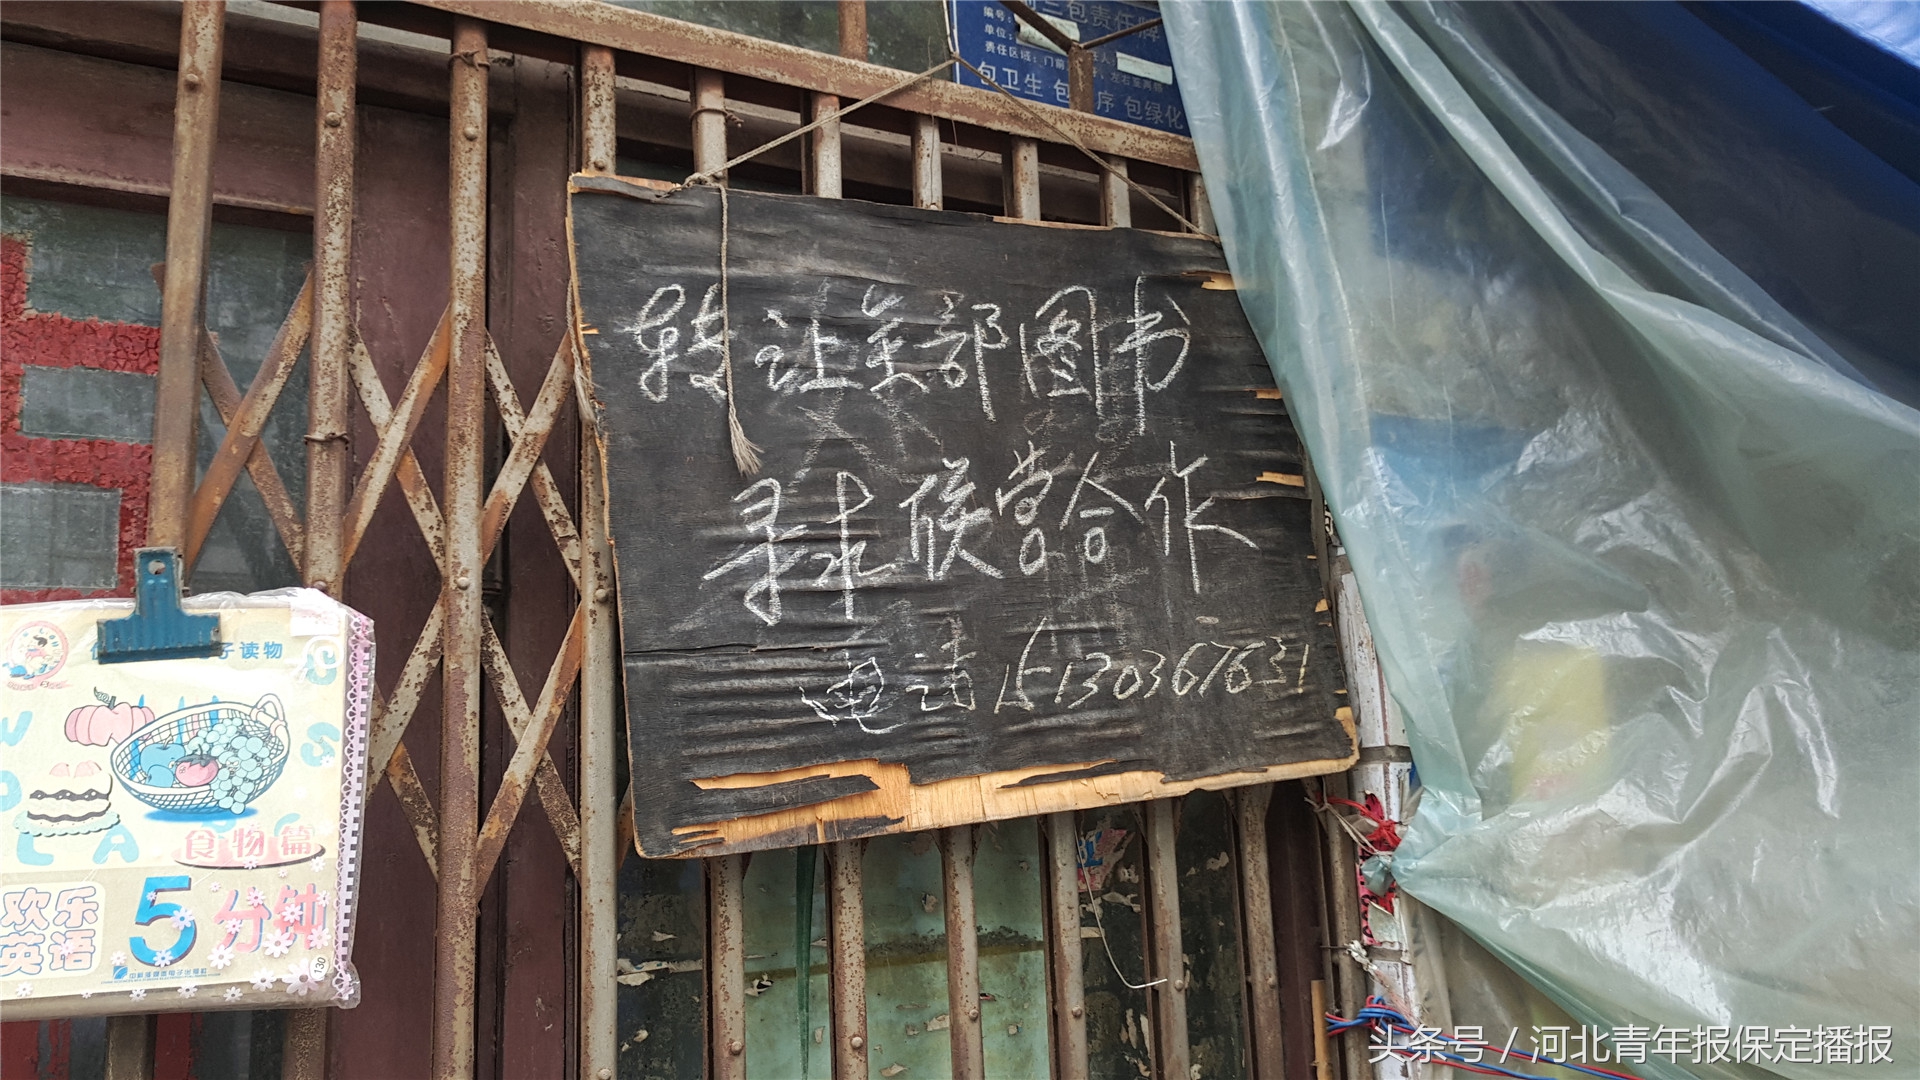 三包责任牌
编号:
单位:
责任区域:门前
包卫生 包 序 包绿化
转让全部图书
寻求联营合作
电话15130367631
子读物
食物篇
欢乐
英语
5分钟
130
头条号 / 河北青年报保定播报